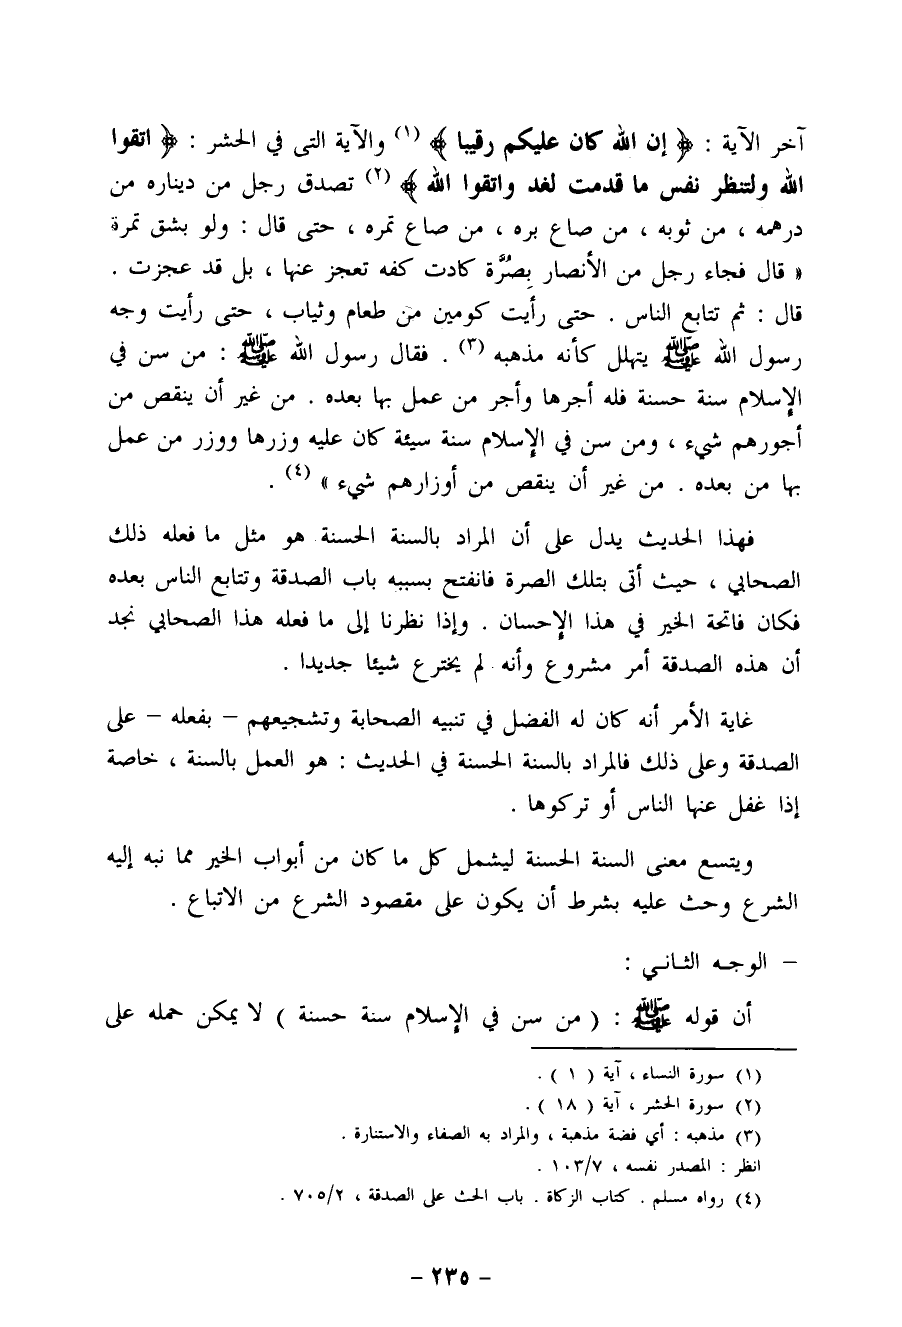 آخر الآية : ﴿ إن الله كان عليكم رقيبا ﴾ (١) والآية التى في الحشر : ﴿ اتقوا
الله ولتنظر نفس ما قدمت لغد واتقوا الله ﴾ (٢) تصدق رجل من ديناره من
درهمه ، من ثوبه ، من صاع بره ، من صاع تمره ، حتى قال : ولو بشق تمرة
« قال فجاء رجل من الأنصار بِصُرَّة كادت كفه تعجز عنها ، بل قد عجزت .
قال : ثم تتابع الناس . حتى رأيت كومين من طعام وثياب ، حتى رأيت وجه
رسول الله ﷺ يتهلل كأنه مذهبه (٣) . فقال رسول الله ﷺ : من سن في
الإسلام سنة حسنة فله أجرها وأجر من عمل بها بعده . من غير أن ينقص من
أجورهم شيء ، ومن سن في الإسلام سنة سيئة كان عليه وزرها ووزر من عمل
بها من بعده . من غير أن ينقص من أوزارهم شيء » (٤) .
فهذا الحديث يدل على أن المراد بالسنة الحسنة هو مثل ما فعله ذلك
الصحابي ، حيث أتى بتلك الصرة فانفتح بسببه باب الصدقة وتتابع الناس بعده
فكان فاتحة الخير في هذا الإحسان . وإذا نظرنا إلى ما فعله هذا الصحابي نجد
أن هذه الصدقة أمر مشروع وأنه لم يخترع شيئا جديدا .
غاية الأمر أنه كان له الفضل في تنبيه الصحابة وتشجيعهم – بفعله – على
الصدقة وعلى ذلك فالمراد بالسنة الحسنة في الحديث : هو العمل بالسنة ، خاصة
إذا غفل عنها الناس أو تركوها .
ويتسع معنى السنة الحسنة ليشمل كل ما كان من أبواب الخير مما نبه إليه
الشرع وحث عليه بشرط أن يكون على مقصود الشرع من الاتباع .
– الوجه الثاني :
أن قوله ﷺ : ( من سن في الإسلام سنة حسنة ) لا يمكن حمله على
(١) سورة النساء ، آية ( ١ ) .
(٢) سورة الحشر ، آية ( ١٨ ) .
(٣) مذهبه : أي فضة مذهبة ، والمراد به الصفاء والاستنارة .
انظر : المصدر نفسه ، ١٠٣/٧ .
(٤) رواه مسلم . كتاب الزكاة . باب الحث على الصدقة ، ٧٠٥/٢ .
- ٢٣٥ -